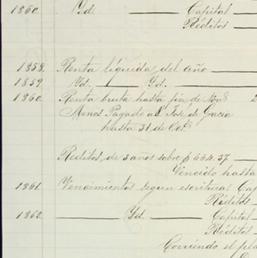 1860. Yd. — Capital —
Réditos —
1858. Renta líquida del año —
1859. Yd. — Yd. —
1860. Renta bruta hasta fin de
Menos Pagado a
hasta 31 de Oct.
Réditos de 3 años sobre $ 664.37
Vencido hasta
1861. Vencimientos segun escritura Cap
Réditos
1862. — Yd. — Capital
Réditos
Corriendo el pla